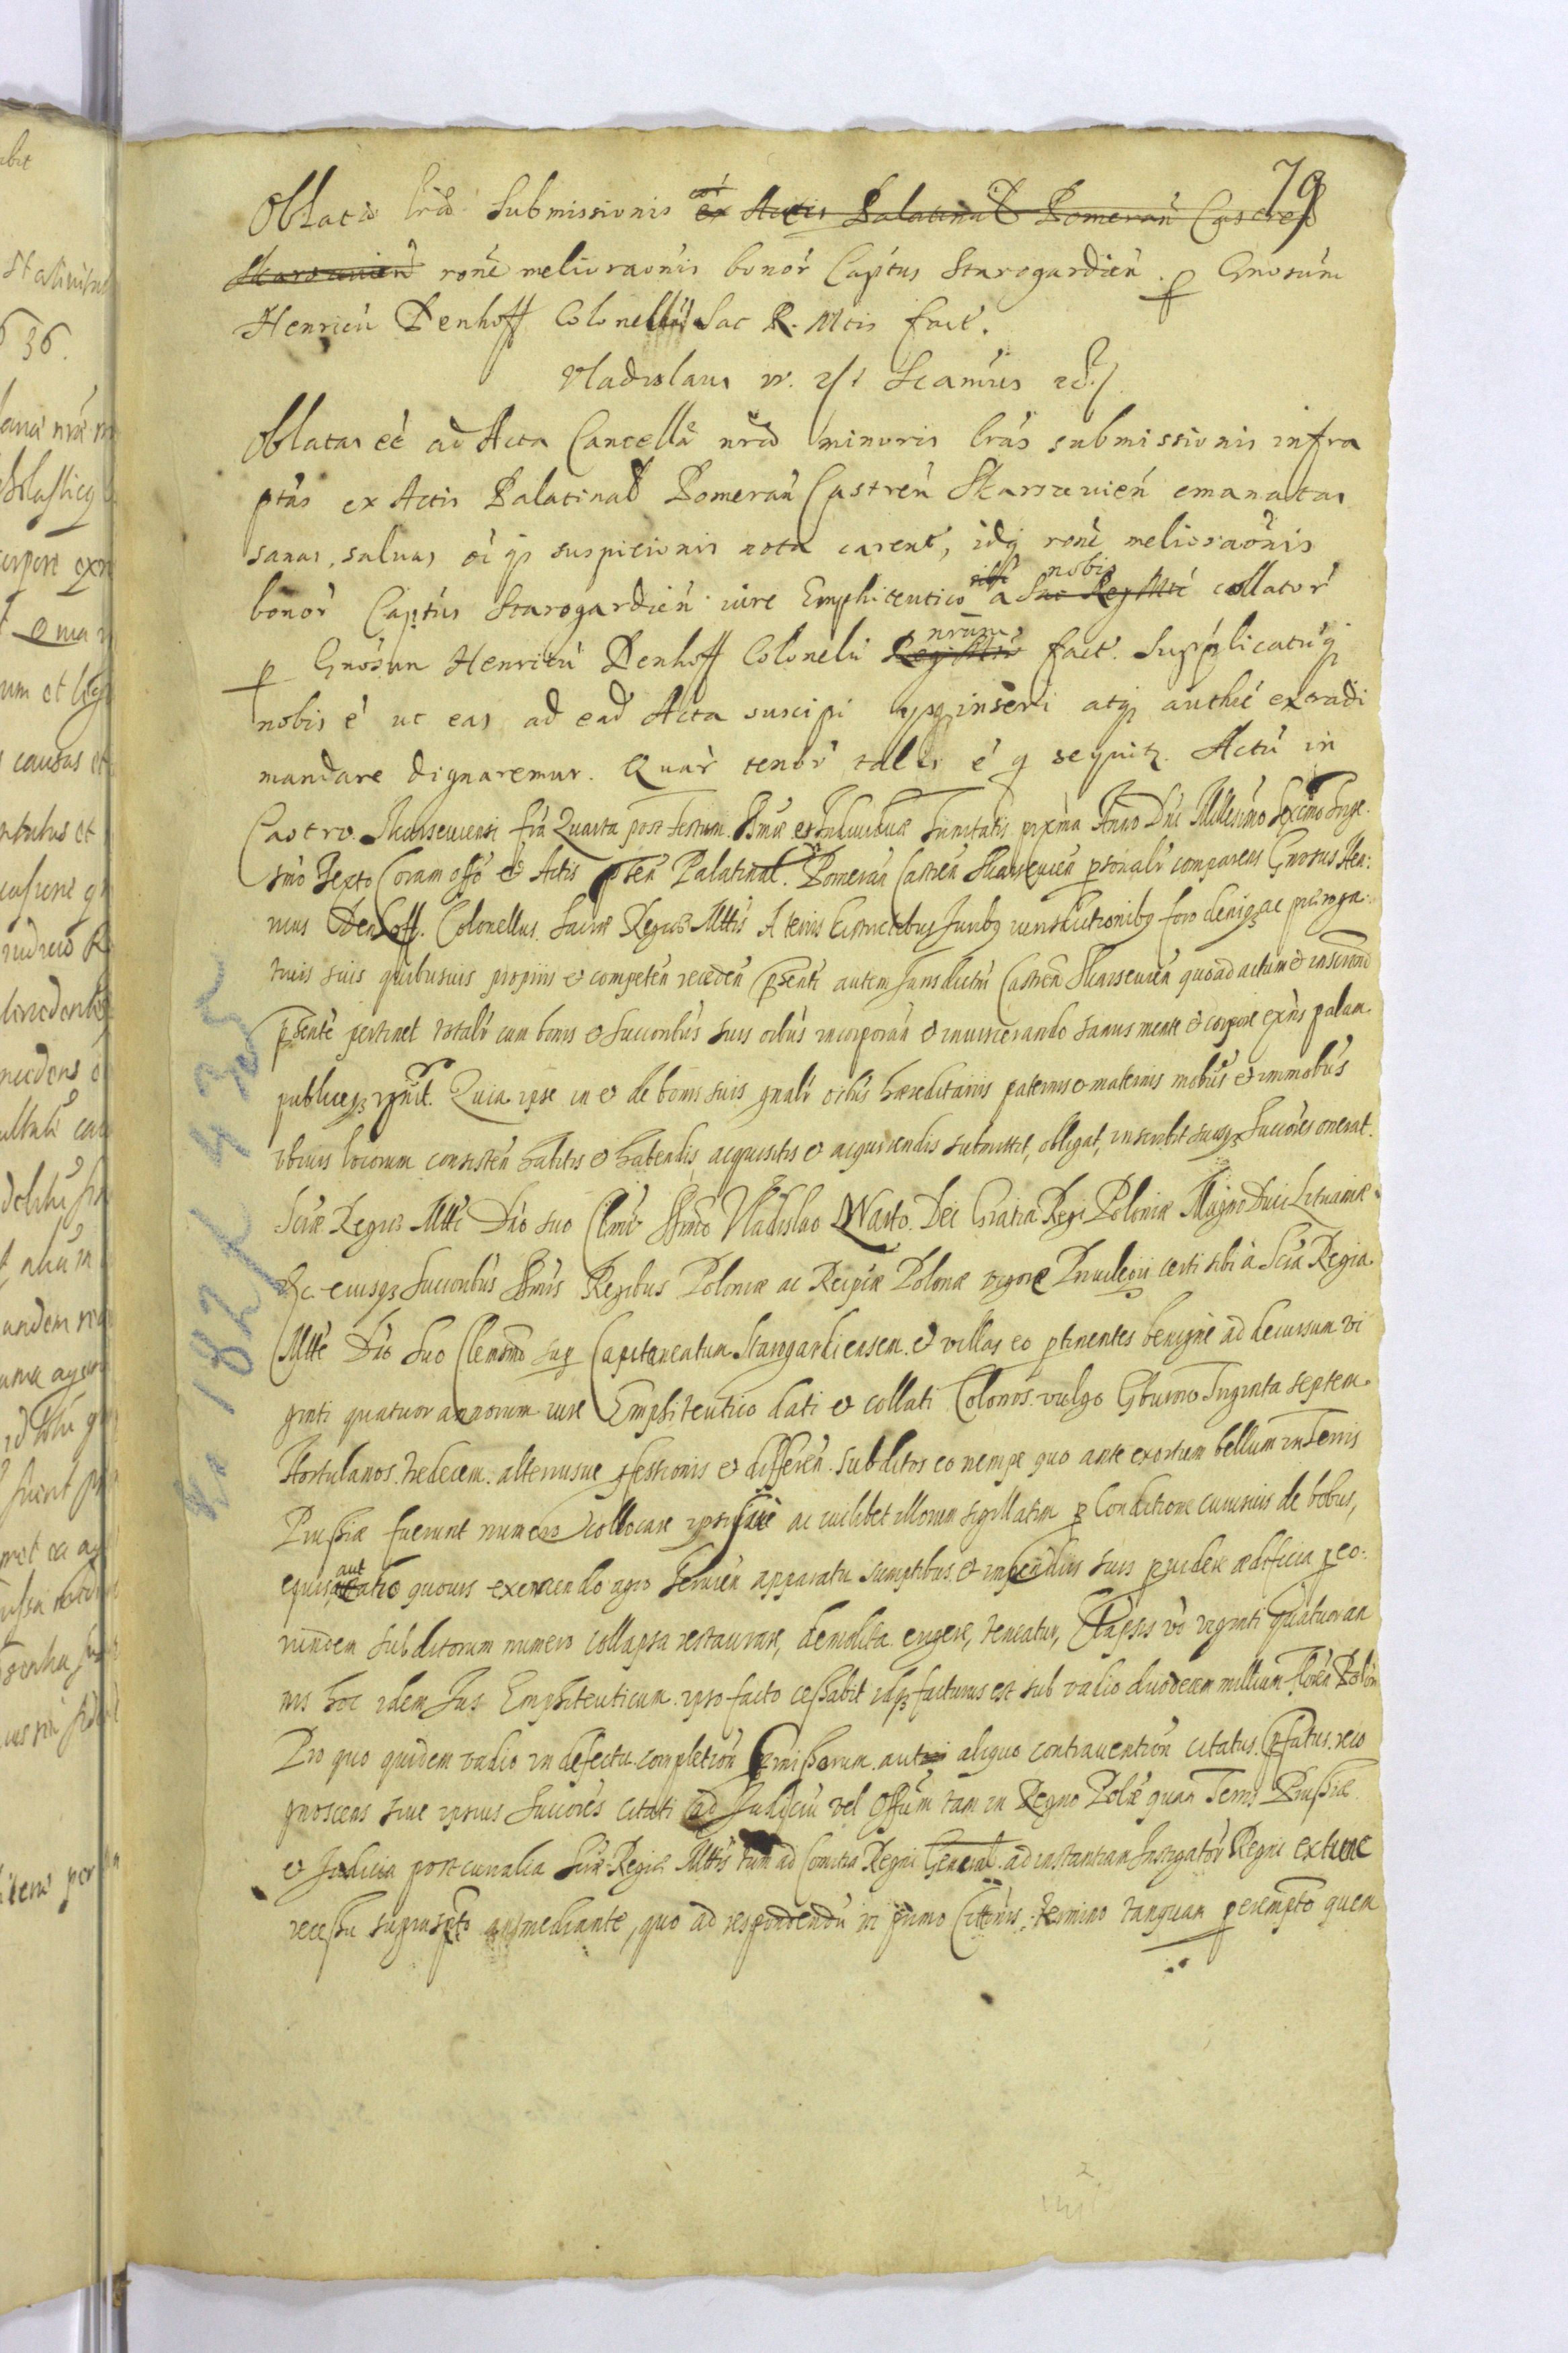 79
Oblatio lrãr Submissionis ex Actis Palatinat Pomeran Castren
Skarszewien rone meliorãonis bonor Captus Starogardien. p Gnosum
Henricu Denhoff Colonellu Sac R. Mtis fact.
Vladislaus IV. Scamus
Oblatas eé ad Acta Cancellã nrã minoris lrás submissionis infra
ptas ex Actis Palatinat Pomeran Castren Skarszewien emanatas
sanas, saluas oi qz suspicionis nota carent, idq rone meliorãonis
bonor Captus Starogardien iure Emphiteutico a nobis Sac Reg Mte collator
p Gnosum Henricu Denhoff Colonelu nrum Reg Mtis fact. Supplicatuq
nobis é ut eas ad ead Acta suscipi inseri atqz authé extradi
mandare dignaremur. Quar tenor talis é q sequitz. Actu in
Castro Skarsseuiensi fria Quarta post Festum Ssmæ et Indiuiduæ Trinitatis pxima Anno Dni Millesimo Sexcmo Trige
smo Sexto Coram offo et Actis pnten Palatinal. Pomeran Castren Skarseuien psonalr comparens Gnosus Hen:
ricus Denhoff. Colonellus Sacræ Regiæ Mttis A terris districtibus Juribq iurisdictionibq foro deniqz ac præroga
tiuis suis quibusuis propriis et competen receden psenti autem Jurisdictni Castren Skarseuien quoad actum et inscriond
psente pertinet totalr cum bonis et Succoribus suis oibus incorporan et inuiscerando sanus mente et corpore exns palam
publiceqz rgnit. Quia ipse in et de bonis suis gnalr oibus hæreditariis paternis et maternis mobibus et immobus
ubiuis locorum consisten habitis et habendis, acquisitis et acquirendis submittit, obligat, inscribit suosqz Succores onerat
Scræ Regiæ Mtti Dno suo Clmo Ssmo Vladislao Quarto Dei Gratia Regi Poloniæ Magno Duci Lituaniæ
&c. eiusqz Succoribus Ssmis Regibus Poloniæ ac Reipcæ Polonæ vigore Priuilegii certi sibi à Scra Regia
Mtte Dno Suo Clemsmo sup Capitaneatum Starogardiensem et villas eo ptinentes benigne ad decursum vi
ginti quatuor annorum iure Emphiteutico dati et collati Colonos vulgo Gburno Triginta septem
Hortulanos tredecim alteriusue pfessionis et differen subditos eo nempe quo ante exortum bellum in Terris
Prussiæ fuerunt numero collocare ipsisque ac cuilibet illorum sigillatim p Conditione cuiusuis de bobus,
equis aut alio quouis exercendo agro seruien apparatu sumptibus et impendiis suis puidere ædificia p eo:
rundem subditorum numero collapsa restaurare, demolita erigere, teneatur, Elapsis vo viginti quatuor an
nis hoc idem Jus Emphiteuticum ipso facto cessabit idqz facturus est sub vadio duodecim millium floren Polon
Pro quo quidem vadio in defectu completion pmissorum aut in aliquo contrauention citatus pfatus reco
gnoscens siue ipsius Succores citati ad Judiciu vel Offum tam in Regno Polæ quam Terris Prussiæ
et Judicia postcurialia Scræ Regiæ Mttis tum ad Comitia Regni General ad instantiam Instigator Regni extunc
recessu suprascpto mediante, quo ad respondendu in primo Cittonis termino tanquam perempto quem